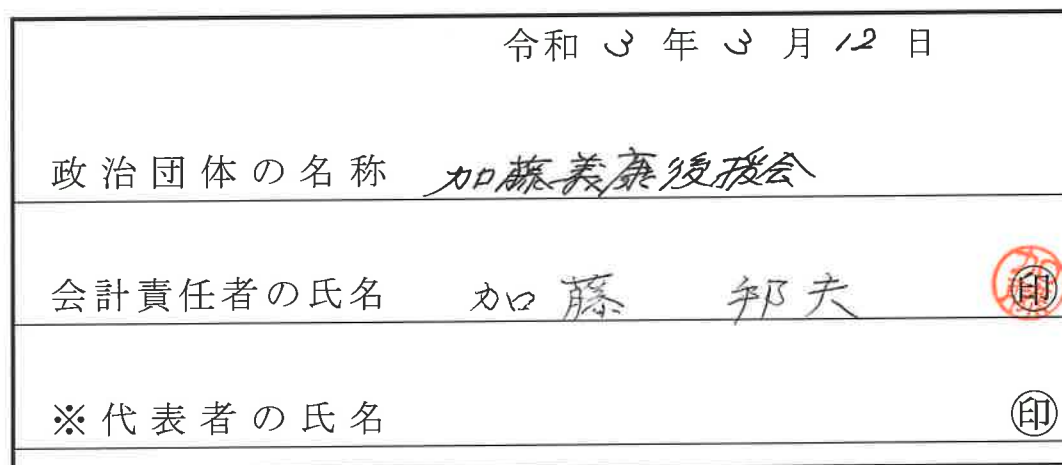 令和 3 年 3 月 12 日
政治団体の名称 加藤義康後援会
会計責任者の氏名 加藤 邦夫 ㊞
※代表者の氏名 ㊞